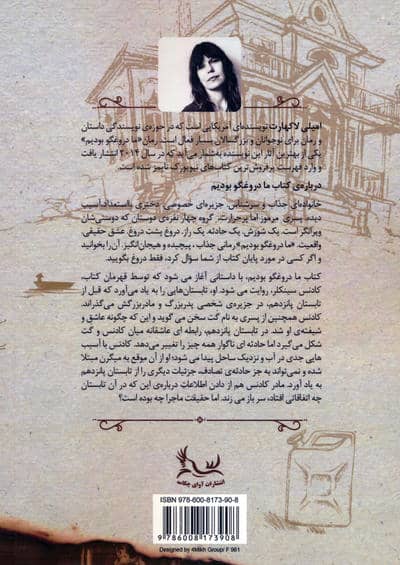 امیلی لاکهارت نویسنده‌ای آمریکایی است که در حوزه‌ی نویسندگی داستان
و رمان برای نوجوانان و بزرگسالان بسیار فعال است. رمان «ما دروغگو بودیم»
یکی از بهترین آثار این نویسنده به‌شمار می‌آید که در سال ۲۰۱۴ انتشار یافت
و وارد فهرست پرفروش‌ترین کتاب‌های نیویورک تایمز شده است.
درباره‌ی کتاب ما دروغگو بودیم
خانواده‌ای جذاب و سرشناس. جزیره‌ای خصوصی. دختری بااستعداد،آسیب
دیده. پسری مرموز اما پرحرارت. گروه چهار نفره‌ی دوستان که دوستی‌شان
ویرانگر است. یک شورش. یک حادثه. یک راز. دروغ پشت دروغ. عشق حقیقی.
واقعیت. «ما دروغگو بودیم»رمانی جذاب ، پیچیده و هیجان‌انگیز. آن‌را بخوانید
و اگر کسی در مورد پایان کتاب از شما سؤال کرد، فقط دروغ بگویید.
کتاب ما دروغگو بودیم، با داستانی آغاز می شود که توسط قهرمان کتاب،
کادنس سینکلر، روایت می شود. او، تابستان‌هایی را به یاد می‌آورد که قبل از
تابستان پانزدهم، در جزیره‌ی شخصی پدربزرگ و مادربزرگش می‌گذراند.
کادنس همچنین از پسری به نام گت سخن می گوید و این که چگونه عاشق و
شیفته‌ی او شد. در تابستان پانزدهم، رابطه ای عاشقانه میان کادنس و گت
شکل می‌گیرد اما حادثه ای ناگوار همه چیز را تغییر می‌دهد. کادنس با آسیب
هایی جدی در آب و نزدیک ساحل پیدا می‌شود؛ او از آن موقع به میگرن مبتلا
شده و نمی‌تواند به جز حادثه‌ی تصادف، جزئیات دیگری را از تابستان پانزدهم
به یاد آورد. مادر کادنس هم از دادن اطلاعات درباره‌ی این که در آن تابستان
چه اتفاقاتی افتاد، سر باز می زند. اما حقیقت ماجرا چه بوده است؟
انتشارات آوای چکامه
ISBN 978-600-8173-90-8
9 786008 173908
Designed by 4Mikh Group/ F 981